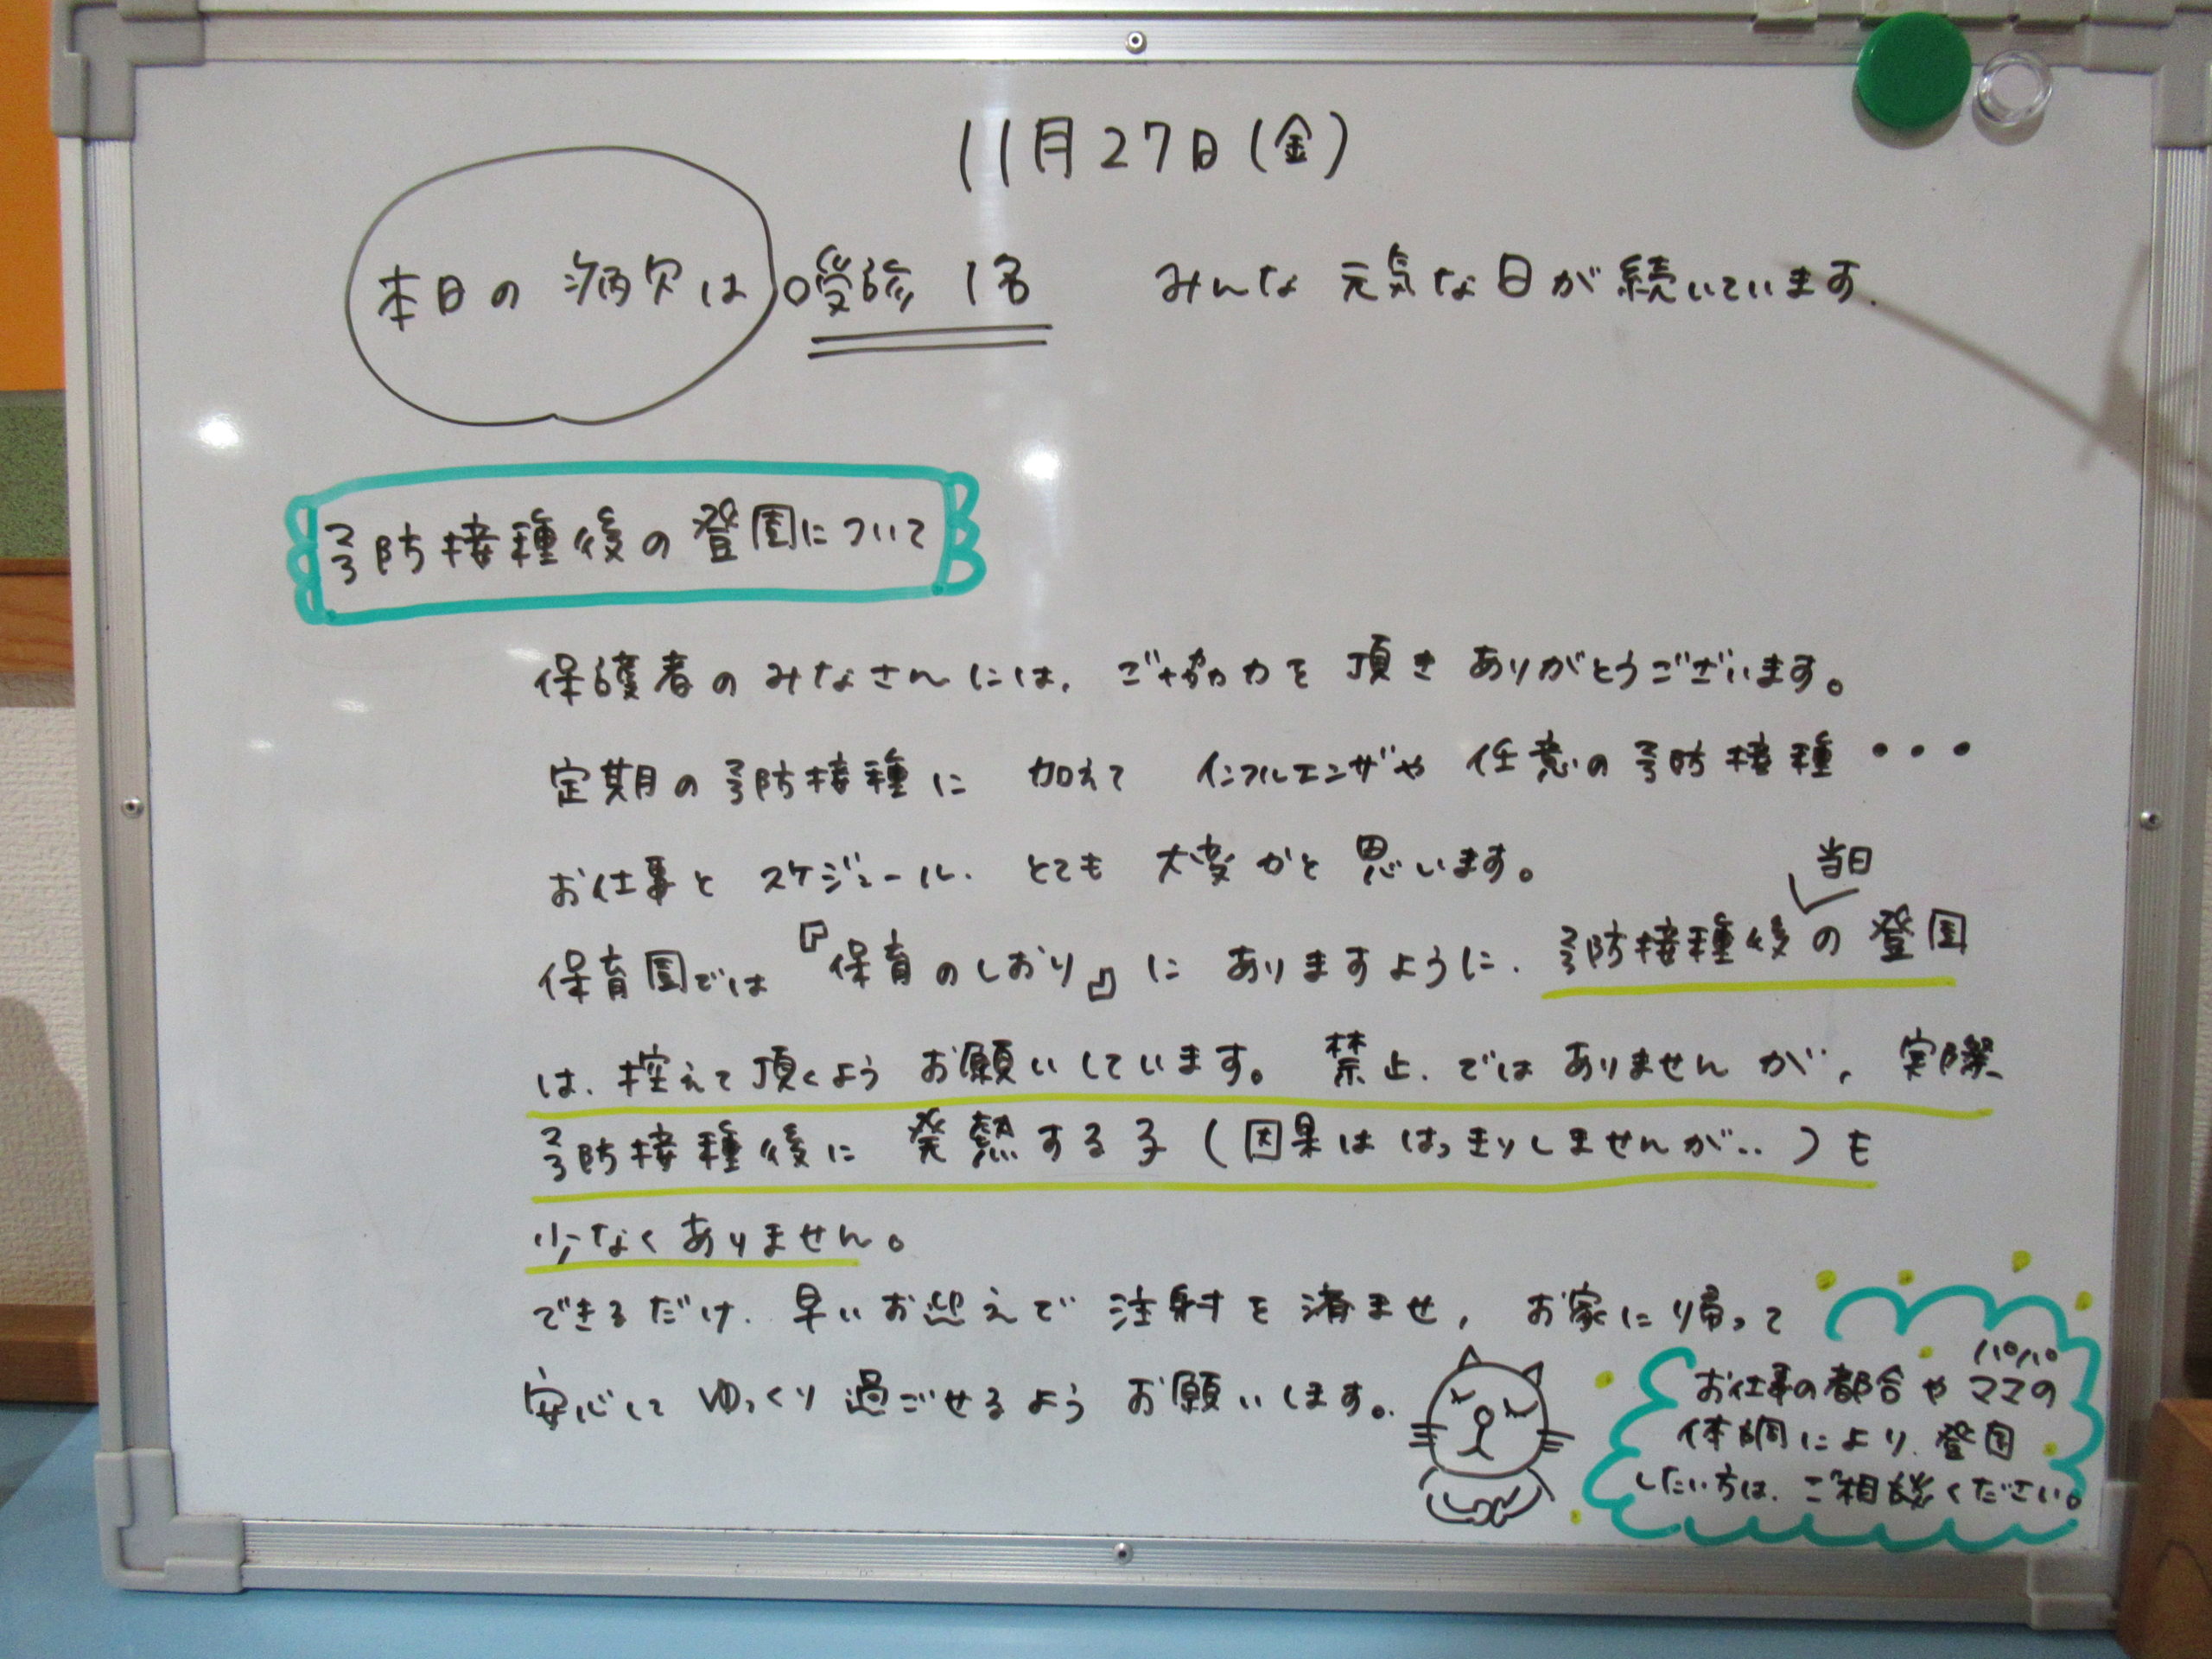 11月27日(金)
本日の病欠は 受診 1名 みんな 元気な日が続いています.
予防接種後の登園について
保護者のみなさんには、ご協力を頂きありがとうございます。
定期の予防接種に 加えて インフルエンザや 任意の予防接種・・・
お仕事と スケジュール、とても 大変かと思います。
当日
保育園では『保育のしおり』に ありますように、予防接種後の登園
は、控えて頂くよう お願いしています。禁止、ではありませんが、実際、
予防接種後に 発熱する子(因果は はっきりしませんが‥)も
少なくありません。
できるだけ、早いお迎えで 注射を済ませ, お家に帰って
安心して ゆっくり過ごせるよう お願いします。
パパ
お仕事の都合や ママの
体調により、登園
したい方は、ご相談ください。